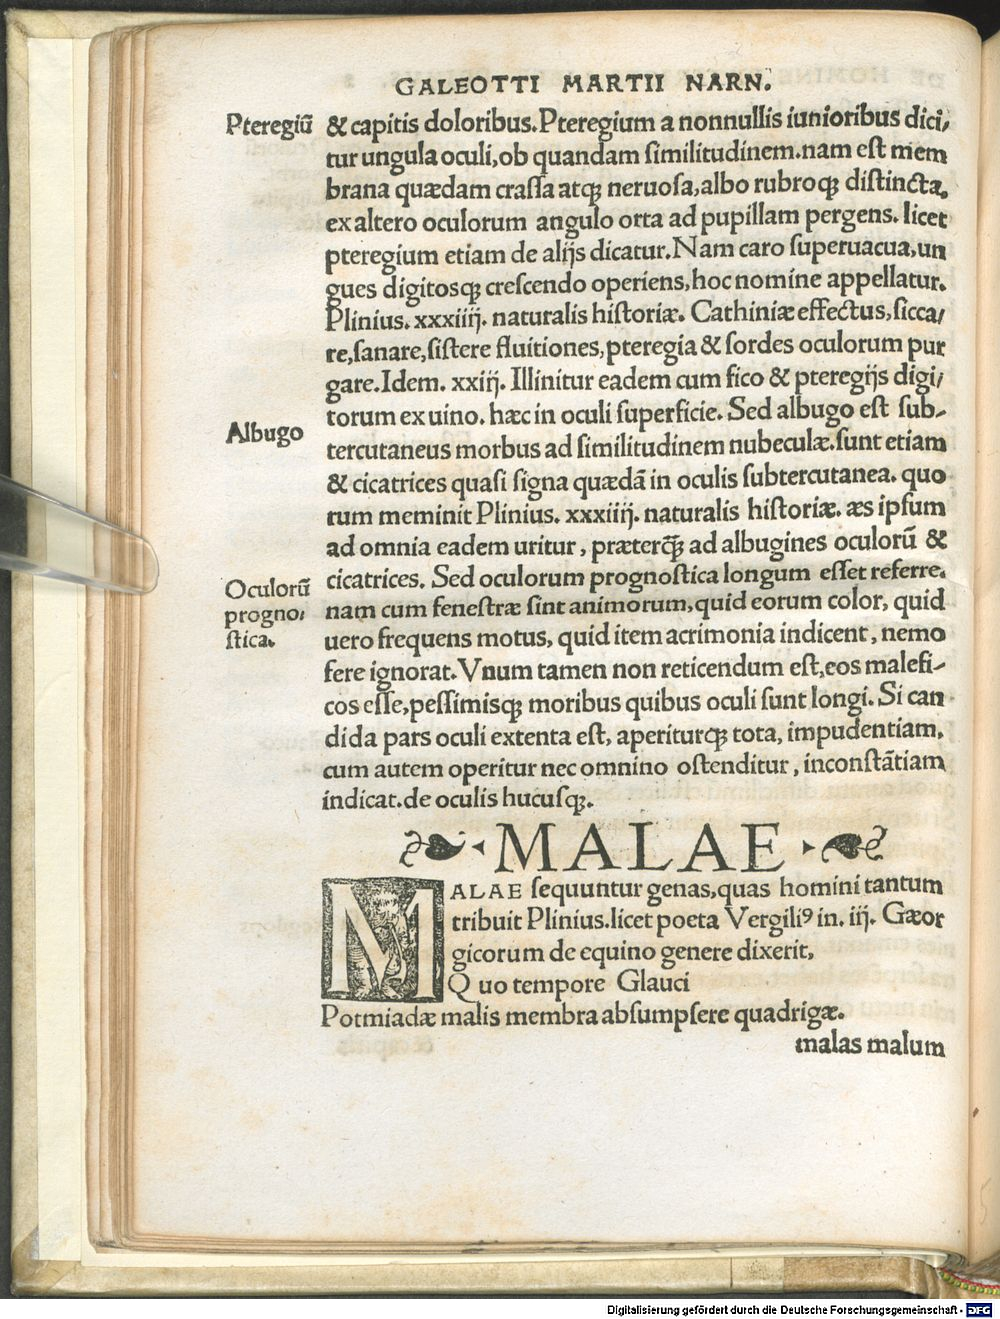 GALEOTTI MARTII NARN.
Pteregiū
& capitis doloribus. Pteregium a nonnullis iunioribus dici/
tur ungula oculi, ob quandam ſimilitudinem. nam eſt mem
brana quædam craſſa atqꝫ neruoſa, albo rubroqꝫ diſtincta.
ex altero oculorum angulo orta ad pupillam pergens. licet
pteregium etiam de alijs dicatur. Nam caro ſuperuacua, un
gues digitosqꝫ creſcendo operiens, hoc nomine appellatur.
Plinius. xxxiiij. naturalis hiſtoriæ. Cathiniæ effectus, ſicca/
re, ſanare, ſiſtere fluitiones, pteregia & ſordes oculorum pur
gare. Idem. xxiij. Illinitur eadem cum fico & pteregijs digi/
torum ex uino. hæc in oculi ſuperficie. Sed albugo eſt ſub-
Albugo
tercutaneus morbus ad ſimilitudinem nubeculæ. ſunt etiam
& cicatrices quaſi ſigna quædā in oculis ſubtercutanea. quo
rum meminit Plinius. xxxiiij. naturalis hiſtoriæ. æs ipſum
ad omnia eadem uritur, præterqꝫ̄ ad albugines oculorū &
cicatrices. Sed oculorum prognoſtica longum eſſet referre.
Oculorū
progno/
ſtica.
nam cum feneſtræ ſint animorum, quid eorum color, quid
uero frequens motus, quid item acrimonia indicent, nemo
fere ignorat. Vnum tamen non reticendum eſt, eos malefi-
cos eſſe, peſſimisqꝫ moribus quibus oculi ſunt longi. Si can
dida pars oculi extenta eſt, aperiturqꝫ tota, impudentiam,
cum autem operitur nec omnino oſtenditur, inconſtātiam
indicat. de oculis hucuſqꝫ.
MALAE
MALAE ſequuntur genas, quas homini tantum
tribuit Plinius. licet poeta Vergiliꝰ in. iij. Gæor
gicorum de equino genere dixerit,
Quo tempore Glauci
Potmiadæ malis membra abſumpſere quadrigæ.
malas malum
Digitalisierung gefördert durch die Deutsche Forschungsgemeinschaft - DFG